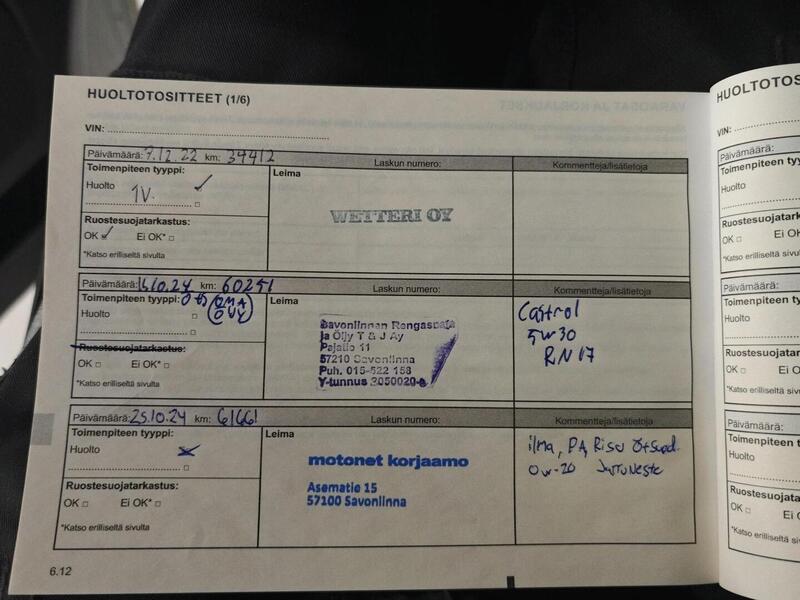 HUOLTOTOSITTEET (1/6)
VIN:
Päivämäärä: 7.12.22 km: 34412 Laskun numero: Kommentteja/lisätietoja
Toimenpiteen tyyppi:
Huolto
1V.
Leima
WETTERI OY
Ruostesuojatarkastus:
OK Ei OK*
*Katso erilliseltä sivulta
Päivämäärä: 10.24 km: 60251 Laskun numero: Kommentteja/lisätietoja
Toimenpiteen tyyppi: OMA
Huolto
Leima
Savonlinnan Rengaspaja
ja Öljy T & J Ay
Pajatie 11
57210 Savonlinna
Puh. 015-522 158
Y-tunnus
Castrol
5W30
RN17
Ruostesuojatarkastus:
OK Ei OK*
*Katso erilliseltä sivulta
Päivämäärä: 25.10.24 km: 61661 Laskun numero: Kommentteja/lisätietoja
Toimenpiteen tyyppi:
Huolto
Leima
motonet korjaamo
Asematie 15
57100 Savonlinna
ilma, PA,
0w-20
Ruostesuojatarkastus:
OK Ei OK*
*Katso erilliseltä sivulta
6.12
HUOLTOTOS
VIN:
Päivämäärä:
Toimenpiteen ty
Huolto
Ruostesuojata
OK Ei OK
*Katso erilliseltä s
Päivämäärä:
Toimenpiteen
Huolto
Ruostesuojata
OK Ei O
*Katso erilliseltä
Päivämäärä:
Toimenpiteen
Huolto
Ruostesuojata
OK Ei O
*Katso erilliseltä